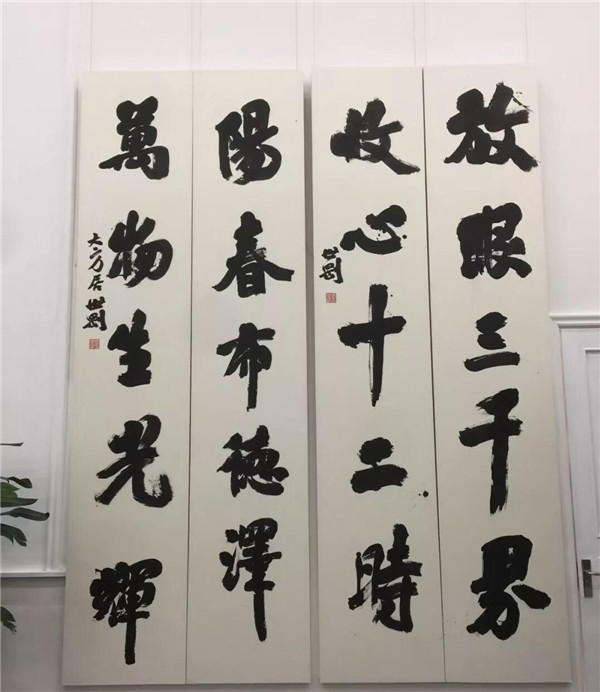 放眼三千界
收心十二時
世剛
陽春布德澤
萬物生光輝
大方居世剛